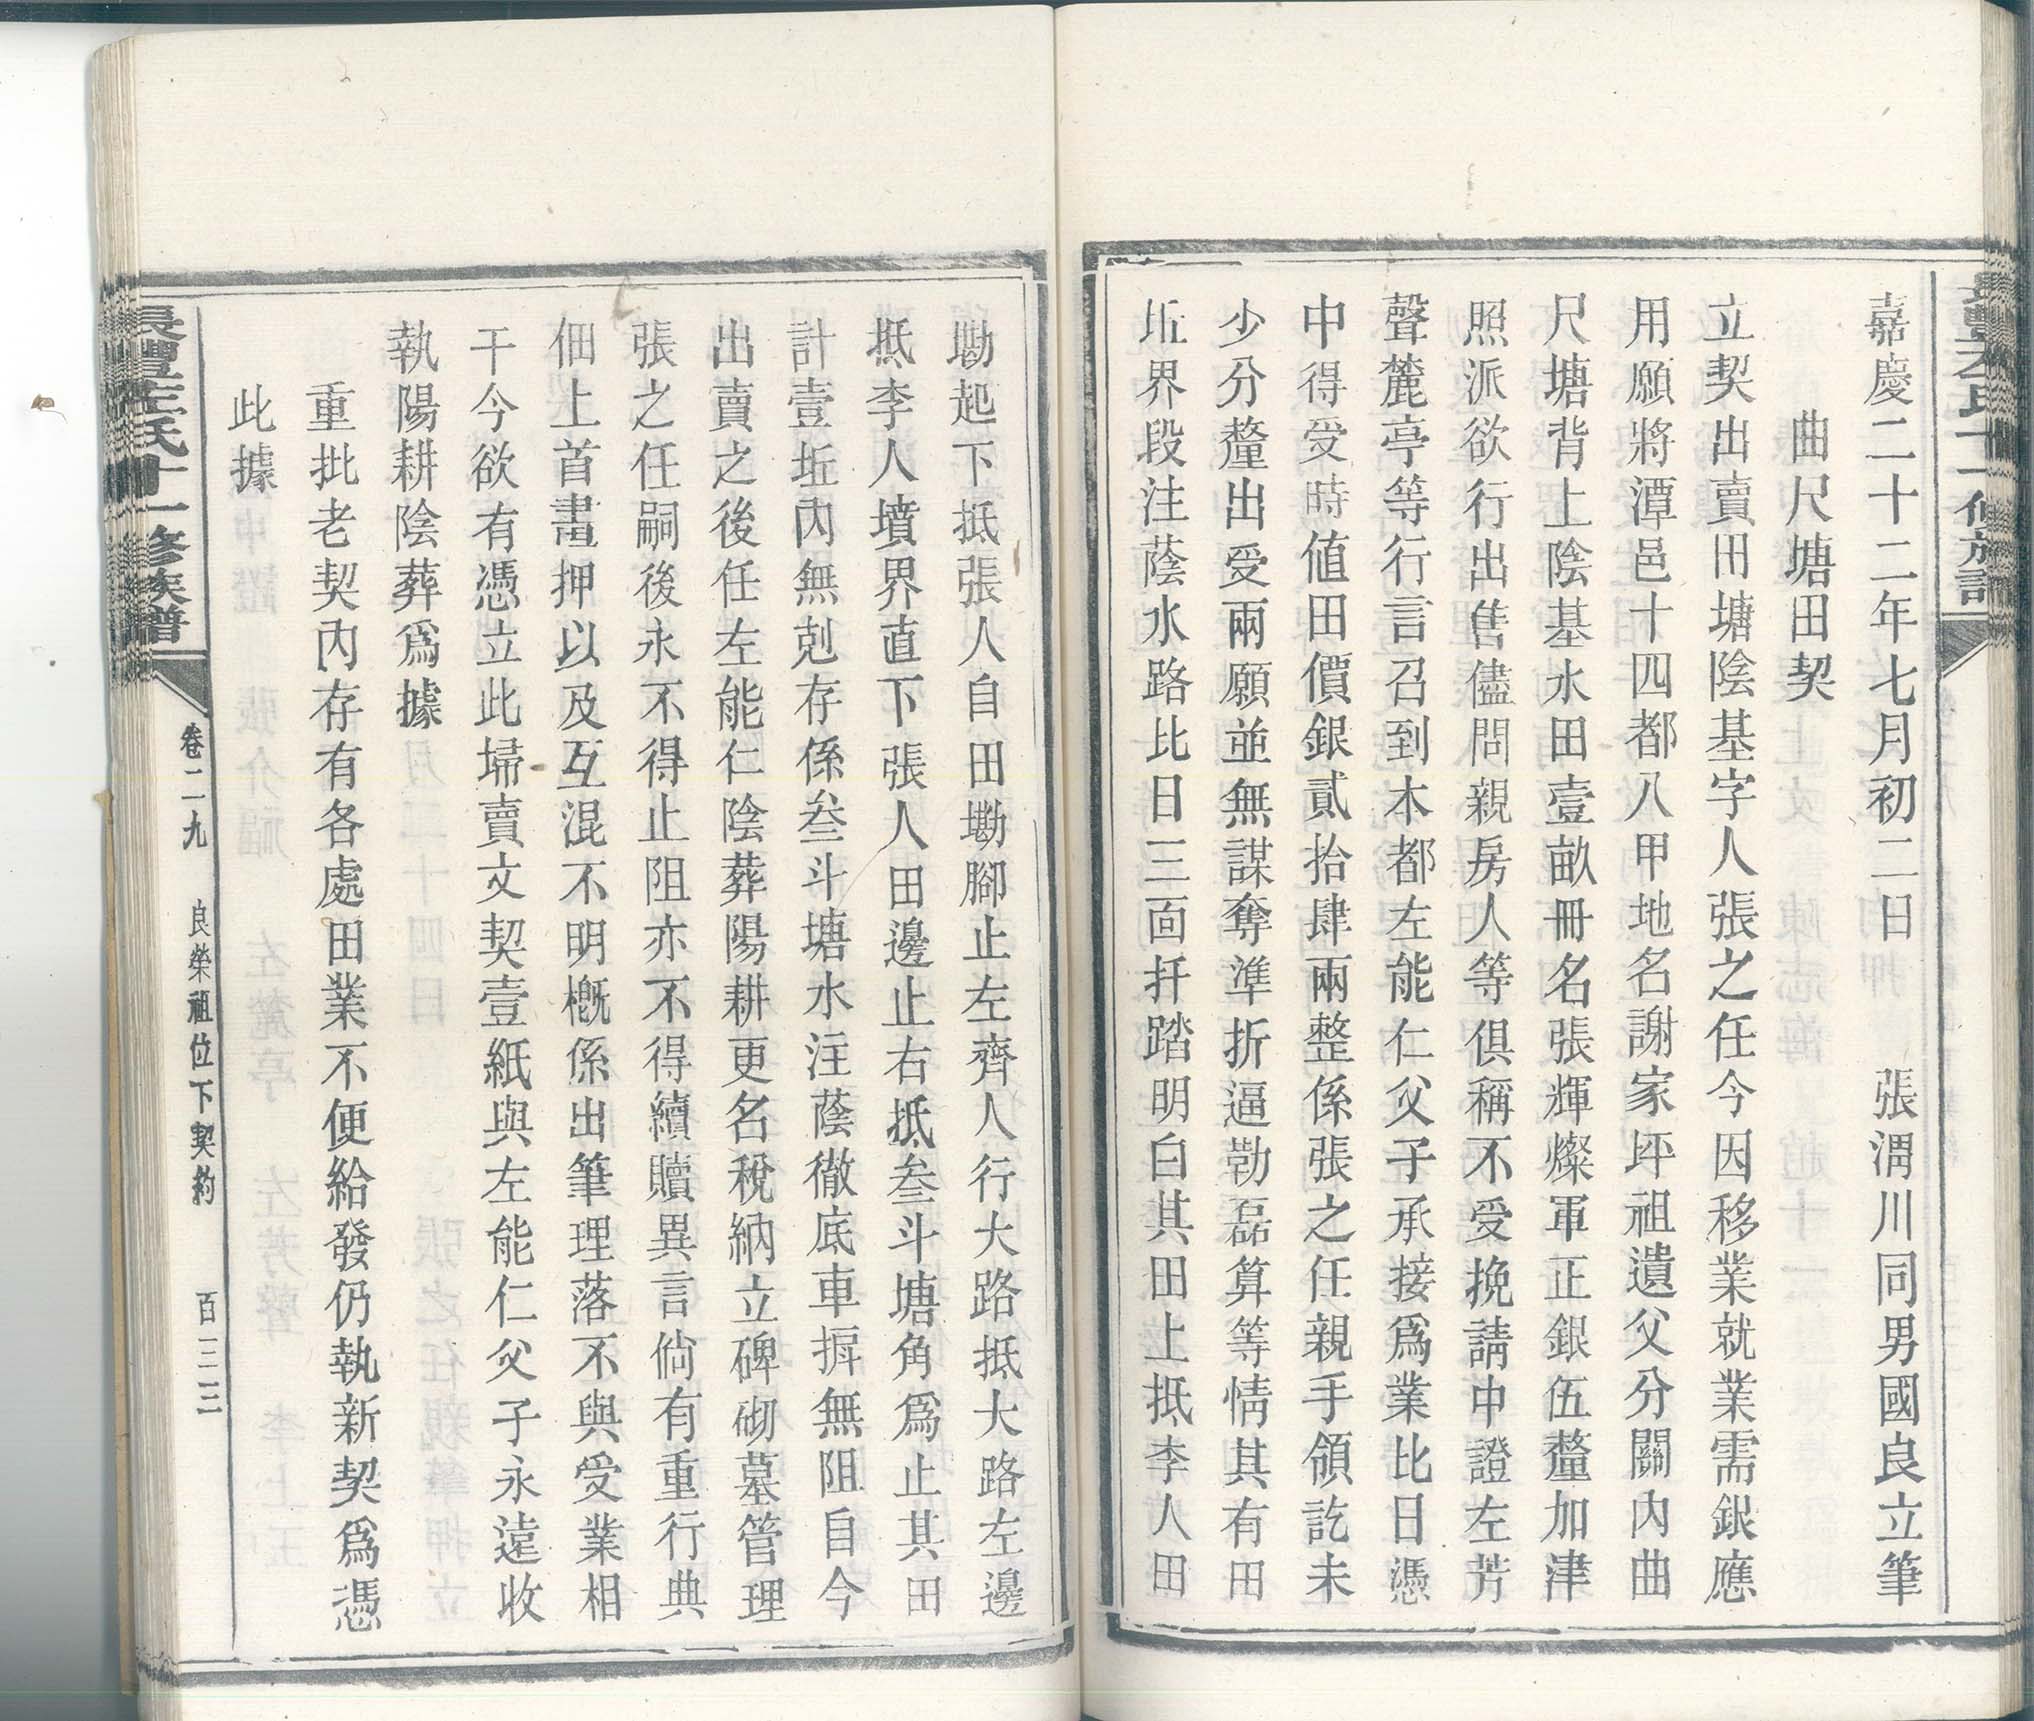 嘉慶二十二年七月初二日 張渭川同男國良立筆
曲尺塘田契
立契出賣田塘陰基字人張之任今因移業就業需銀應
用願將潭邑十四都八甲地名謝家坪祖遺父分關內曲
尺塘背上陰基水田壹畝冊名張輝燦軍正銀伍釐加津
照派欲行出售儘問親房人等俱稱不受挽請中證左芳
聲麓亭等行言召到本都左能仁父子承接爲業比日憑
中得受時値田價銀貳拾肆兩整係張之任親手領訖未
少分釐出受兩願並無謀奪準折逼勒磊算等情其有田
坵界段注蔭水路比日三面扦踏明白其田上抵李人田
墈起下抵張人自田墈腳止左齊人行大路抵大路左邊
抵李人墳界直下張人田邊止右抵叁斗塘角爲止其田
計壹坵內無剋存係叁斗塘水注蔭徹底車㨒無阻自今
出賣之後任左能仁陰葬陽耕更名稅納立碑砌墓管理
張之任嗣後永不得止阻亦不得續贖異言倘有重行典
佃上首畫押以及互混不明槪係出筆理落不與受業相
干今欲有憑立此埽賣文契壹紙與左能仁父子永遠收
執陽耕陰葬爲據
重批老契內存有各處田業不便給發仍執新契爲憑
此據
長豐左氏十一修族譜
卷二九 良榮祖位下契約 百三三